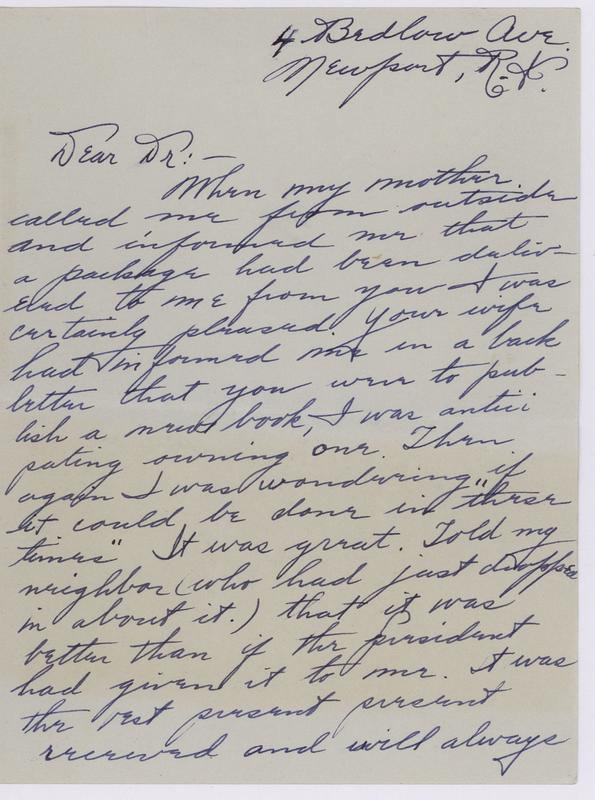 4 Bedlow Ave.
Newport, R.I.
Dear Dr:—
When my mother
called me from outside
and informed me that
a package had been deliv-
ered to me from you I was
certainly pleased. Your wife
had informed me in a back
letter that you were to pub-
lish a new book, I was antici
pating owning one. Then
again I was wondering if
it could be done in "these
times" It was great. Told my
neighbor (who had just dropped
in about it.) that it was
better than if the president
had given it to me. It was
the best present present
received and will always